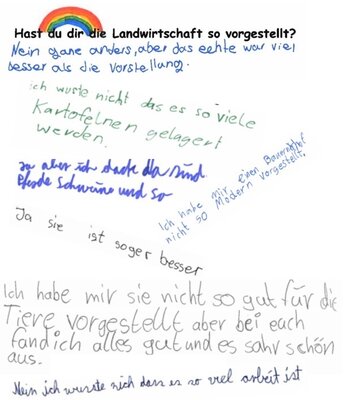 Hast du dir die Landwirtschaft so vorgestellt?
Nein ganz anders, aber das echte war viel
besser als die Vorstellung.
ich wuste nicht das es so viele
Kartofelnen gelagert
werden.
Ja aber ich dachte da sind
Pferde Schweine und so
Ich habe mir einen Bauernhof
nicht so Modern vorgestellt.
Ja sie ist soger besser
Ich habe mir sie nicht so gut für die
Tiere vorgestellt aber bei each
fand ich alles gut und es sahr schön
aus.
Nein ich wusste nich dass es so viel arbeit ist